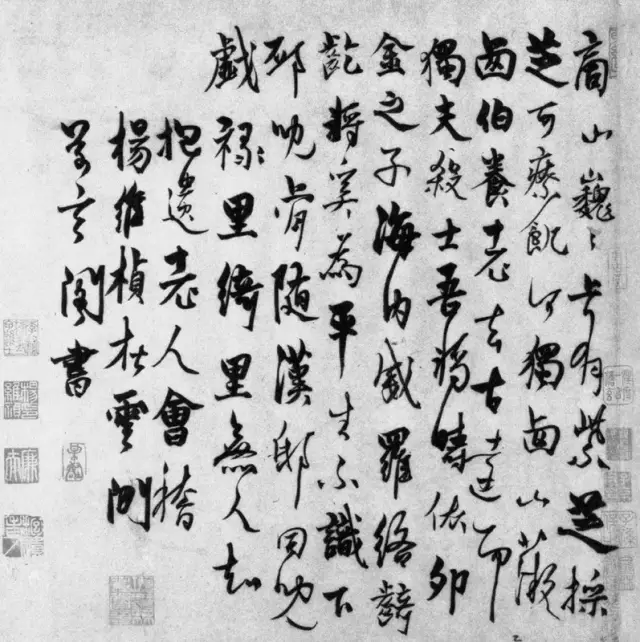 商山巍〻上有紫芝採
芝可療飢何獨西山薇
西伯養老去古遠而
獨夫殺士吾將疇依卯
金之子海内威羅絡齮
齕將奚為平生不識下
邳叟肯隨漢邸同兒
戲祿里綺里無人知
抱遺老人會稽
楊維楨在雲間
草玄閣書